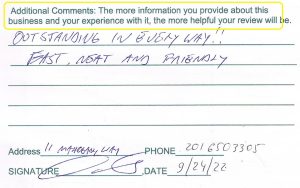 Additional Comments: The more information you provide about this
business and your experience with it, the more helpful your review will be.
OUTSTANDING IN EVERY WAY!!
FAST, NEAT AND FRIENDLY
Address 11 MAHOGANY WAY PHONE 2016503305
SIGNATURE DATE 9/24/22